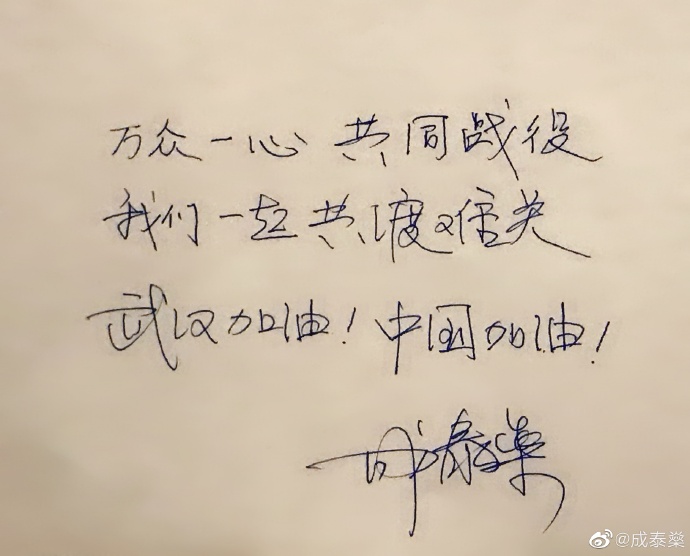 万众一心 共同战役
我们一起共渡难关
武汉加油！中国加油！
成泰燊
@成泰燊